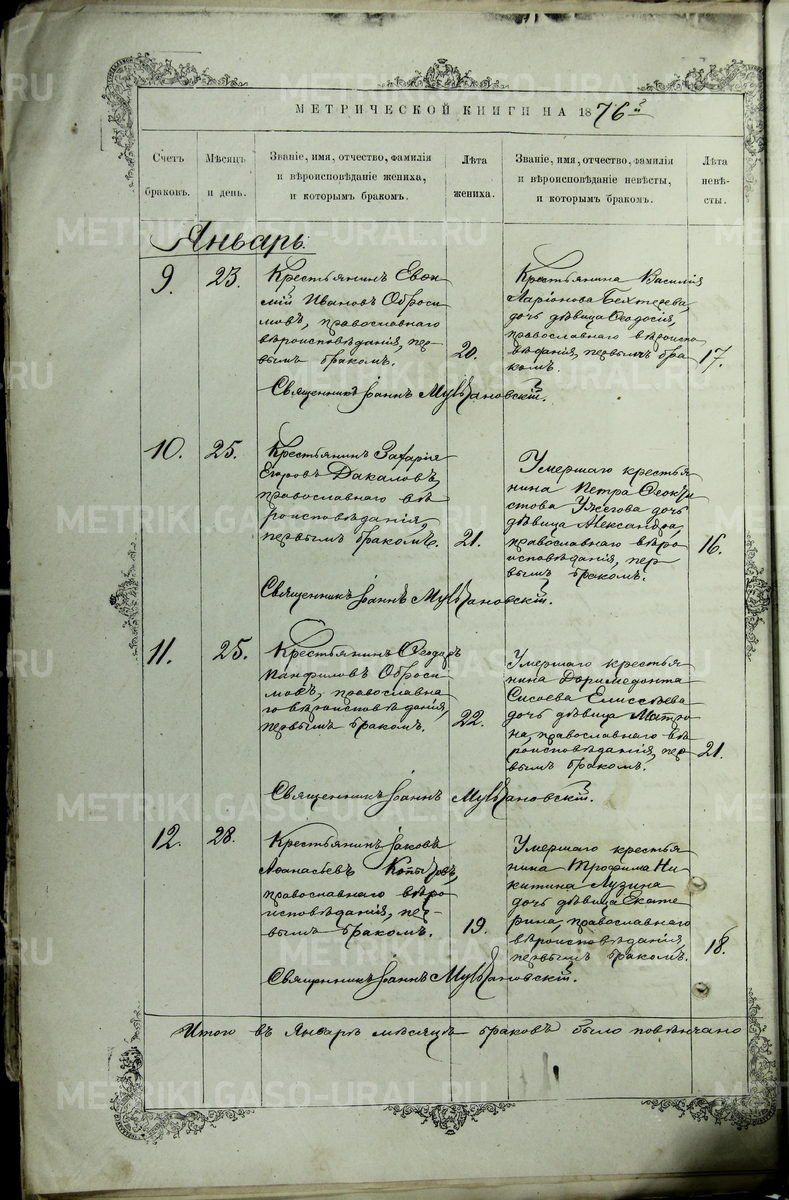 МЕТРИЧЕСКОЙ КНИГИ НА 1876й
Счетъ браковъ.
Мѣсяцъ и день.
Званіе, имя, отчество, фамилія
и вѣроисповѣданіе жениха,
и которымъ бракомъ.
Лѣта жениха.
Званіе, имя, отчество, фамилія
и вѣроисповѣданіе невѣсты,
и которымъ бракомъ.
Лѣта невѣ-
сты.
Январь.
9.
23.
Крестьянинъ Евѳи-
мій Иванов Оброси-
мовъ, православнаго
вѣроисповѣданія, пер-
вымъ бракомъ.
20.
Крестьянина Василія
Ларіонова Бехтерева,
дочь дѣвица Ѳеодосія,
православнаго вѣроиспо-
вѣданія, первымъ бра-
комъ.
17.
Священникъ Іоаннъ
10.
25.
Крестьянинъ Захарія
Егоровъ Дакаловъ,
православнаго вѣ-
роисповѣданія,
первымъ бракомъ.
21.
Умершаго крестья-
нина Петра Ѳеокти-
стова Ужегова дочь
дѣвица Александра,
православнаго вѣро-
исповѣданія, пер-
вымъ бракомъ.
16.
Священникъ Іоаннъ
11.
25.
Крестьянинъ Ѳеодоръ
Панфиловъ Оброси-
мовъ, православна-
го вѣроисповѣданія,
первымъ бракомъ.
22.
Умершаго крестья-
нина Доримедонта
Сисоева Елисѣева
дочь дѣвица Матро-
на, православнаго вѣ-
роисповѣданія, пер-
вымъ бракомъ.
21.
Священникъ Іоаннъ
12.
28.
Крестьянинъ Іаковъ
Аѳанасьевъ Копыловъ,
православнаго вѣро-
исповѣданія, пер-
вымъ бракомъ.
19.
Умершаго крестья-
нина Трофима Ни-
китина Лузина
дочь дѣвица Екате-
рина, православнаго
вѣроисповѣданія,
первымъ бракомъ.
18.
Священникъ Іоаннъ
Итого въ Январѣ мѣсяцѣ браковъ было повѣнчано
METRIKI.GASO-URAL.RU